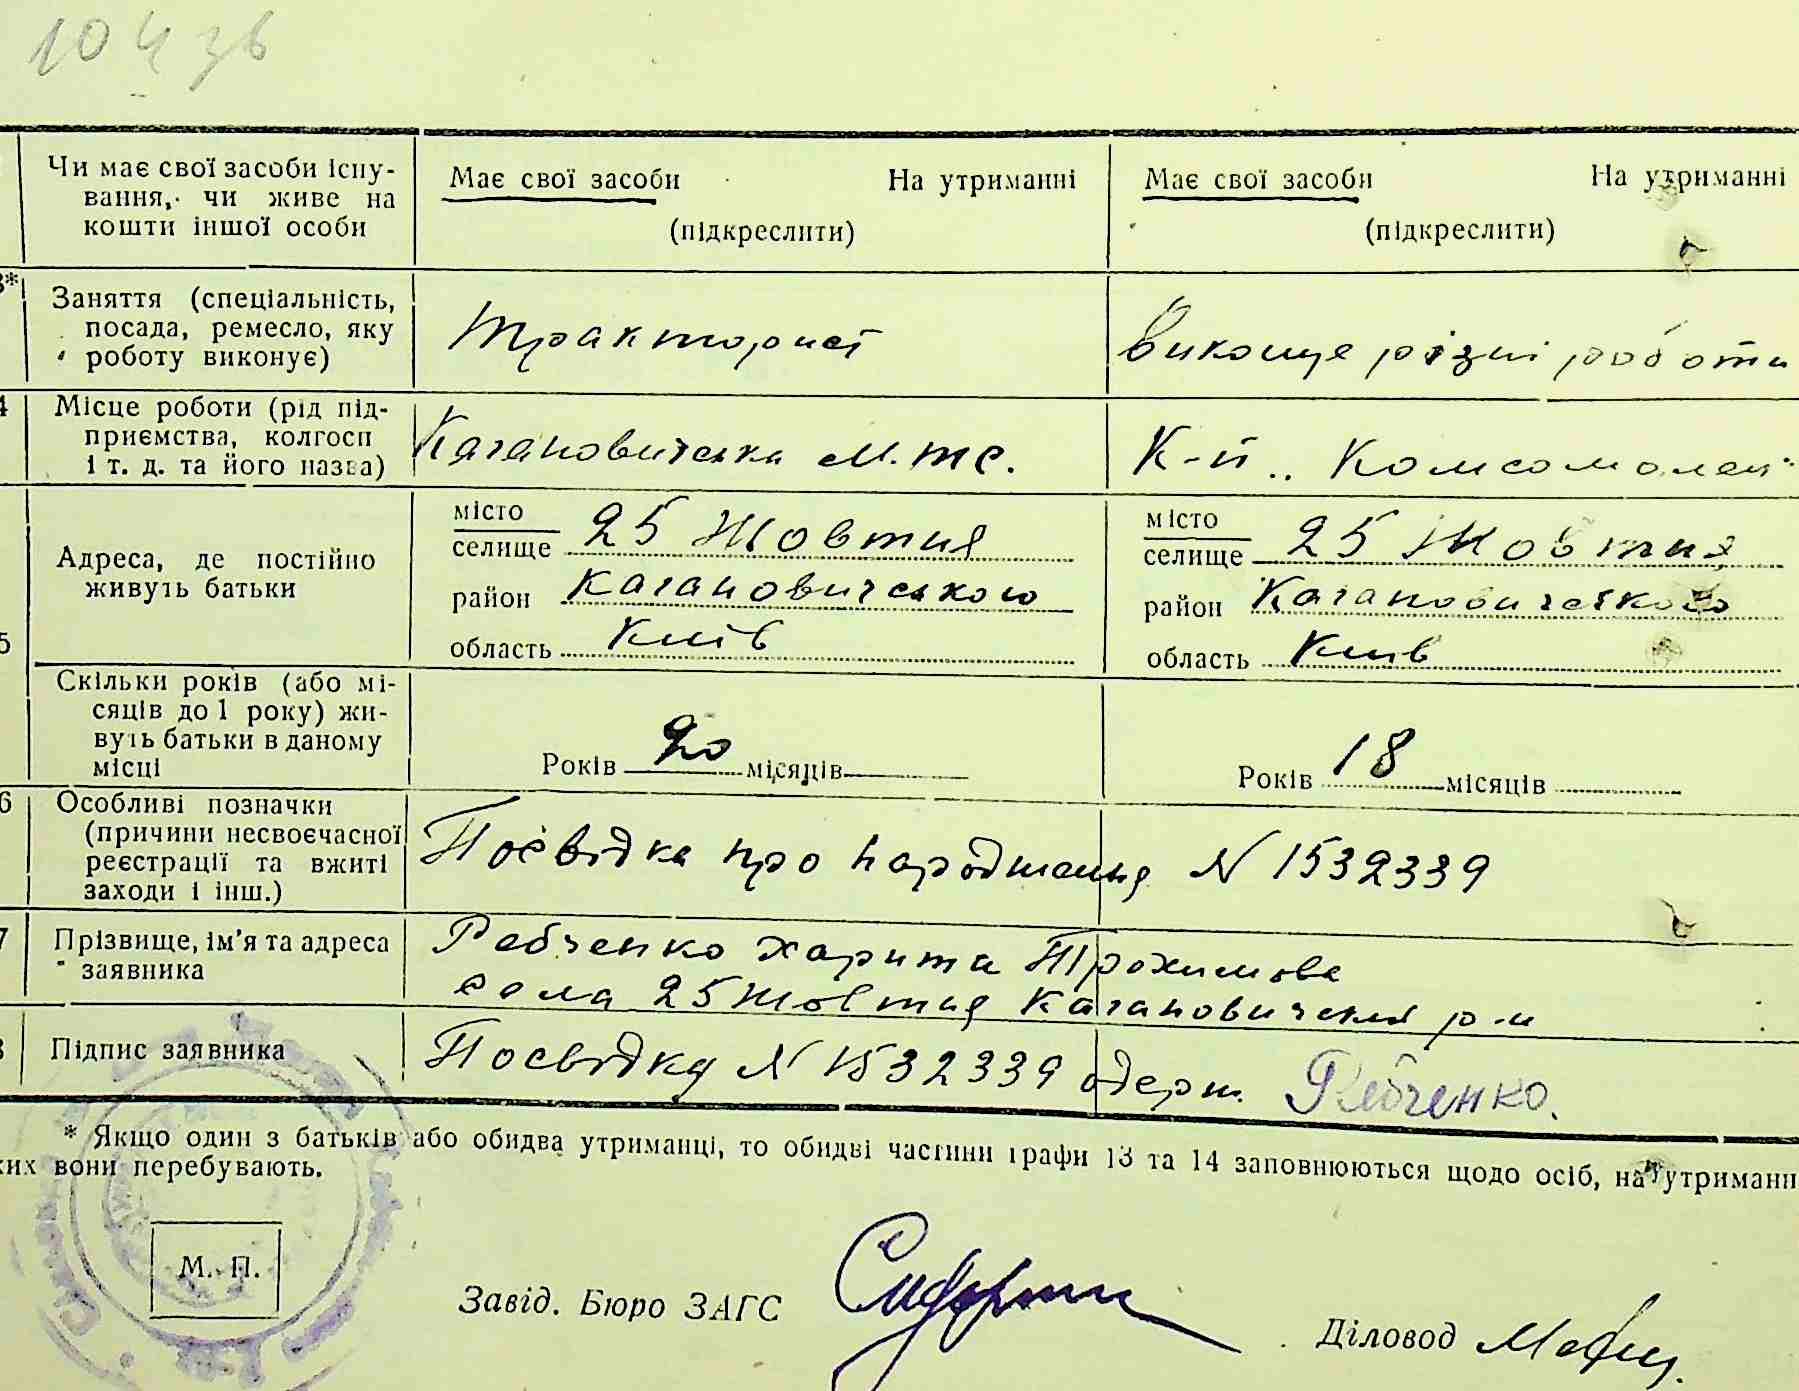 Чи має свої засоби існу-
вання, чи живе на
кошти іншої особи
Має свої засоби На утриманні
(підкреслити)
Має свої засоби На утриманні
(підкреслити)
3*
Заняття (спеціальність,
посада, ремесло, яку
роботу виконує)
Тракторист
Виконує різні роботи
4
Місце роботи (рід під-
приємства, колгосп
і т. д. та його назва)
Кагановичська М.т.с.
К-п „Комсомолец"
5
Адреса, де постійно
живуть батьки
місто
селище 25 Жовтня
район Кагановичського
область Київ
місто
селище 25 Жовтня
район Кагановичського
область Київ
Скільки років (або мі-
сяців до 1 року) жи-
вуть батьки в даному
місці
Років 20 місяців
Років 18 місяців
6
Особливі позначки
(причини несвоєчасної
реєстрації та вжиті
заходи і інш.)
Посвідка про народження N 1532339
7
Прізвище, ім'я та адреса
заявника
Ребченко Харитина Трохимовна
села 25 Жовтня Кагановичськ р-н
8
Підпис заявника
Посвідку N 1532339 одерж. Ребченко.
* Якщо один з батьків або обидва утриманці, то обидві частини графи 13 та 14 заповнюються щодо осіб, на утриманні
ких вони перебувають.
М. П.
Завід. Бюро ЗАГС
Діловод